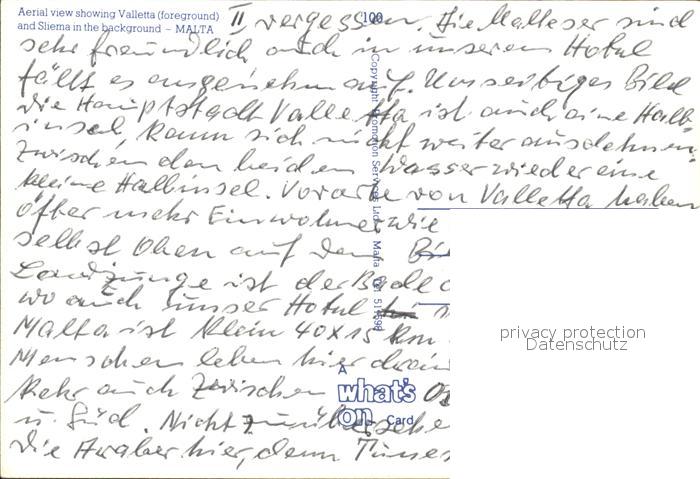 Aerial view showing Valletta (foreground)
and Sliema in the background – MALTA
100
II vergessen. Die Malteser sind
sehr freundlich auch in unserem Hotel
fällt es angenehm auf. Umseitiges Bild
die Hauptstadt Valletta ist auch eine Halb-
insel, kann sich nicht weiter ausdehnen.
Zwischen den beiden Wasser wieder eine
kleine Halbinsel. Vororte von Valletta haben
öfter mehr Einwohner wie
selbst Oben auf dem
Landzunge ist der Bade
wo auch unser Hotel
Malta ist klein 40x15 km
Menschen leben hier
auch Zwischen
u. Süd. Nicht
die Araber hier, denn
Copyright Promotion Services Ltd., Malta
A
what's
on Card
privacy protection
Datenschutz